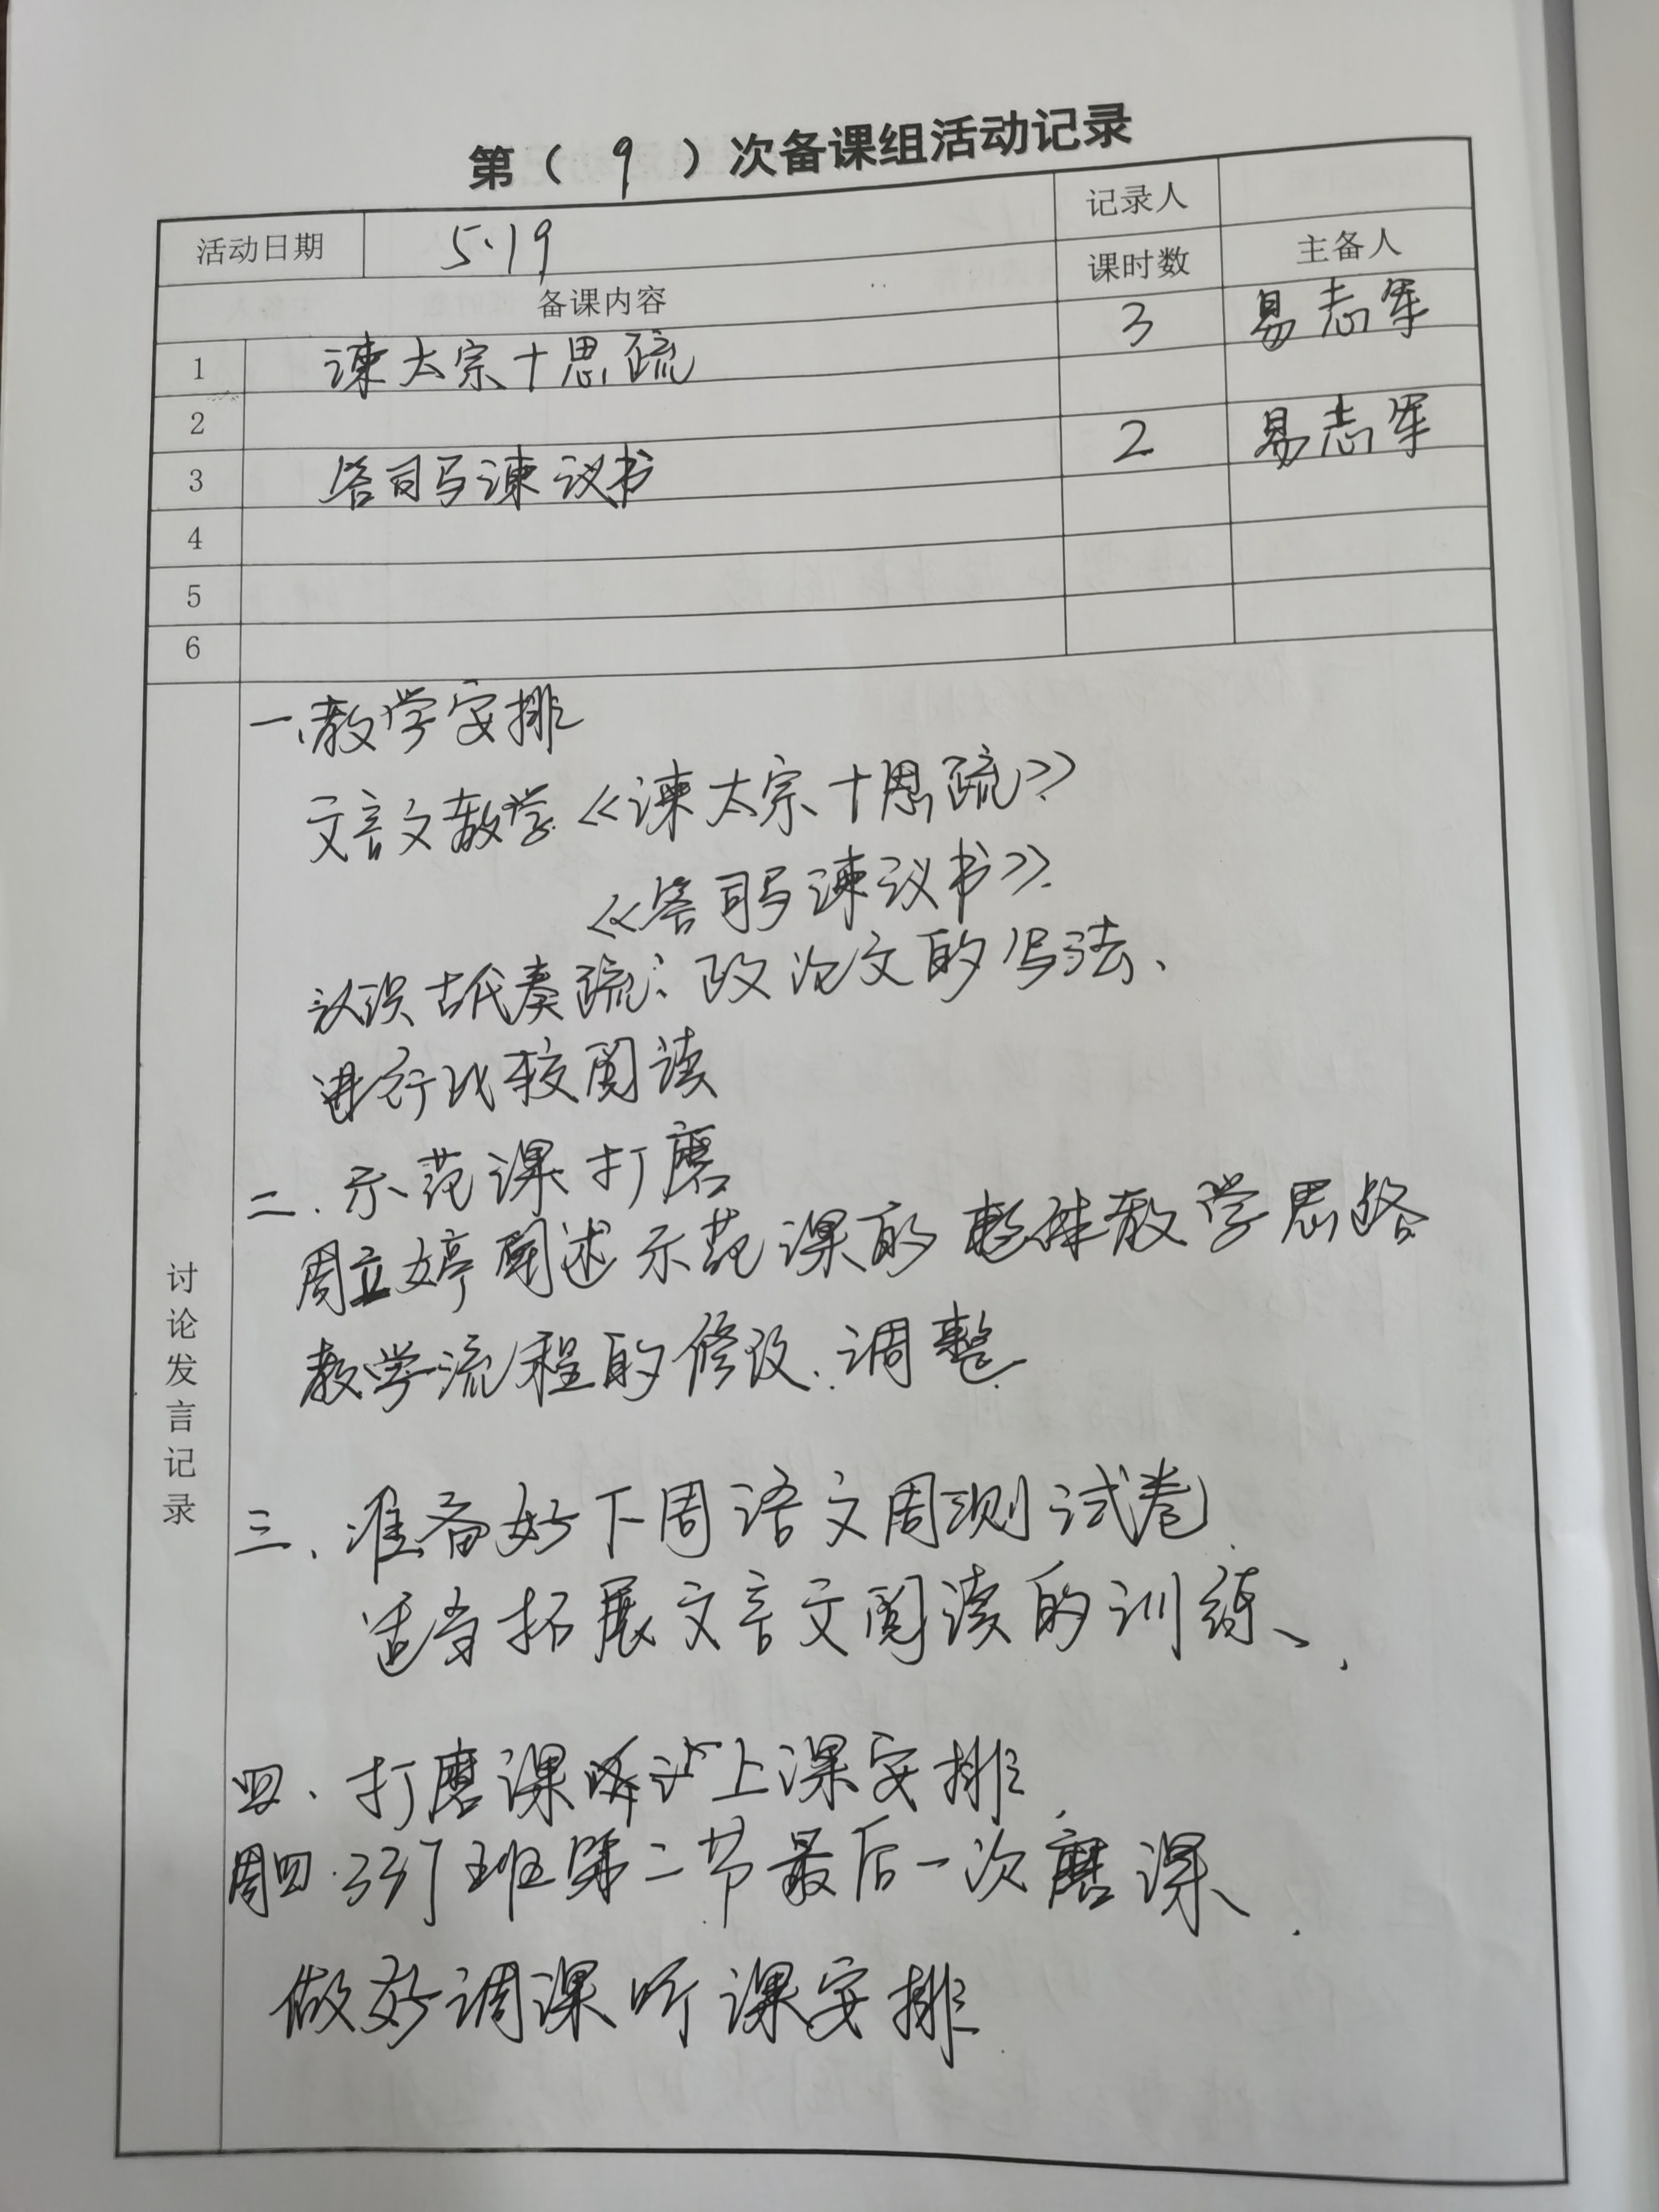 第（9）次备课组活动记录
活动日期 5.19 记录人
备课内容 课时数 主备人
1 谏太宗十思疏 3 易志军
2
3 答司马谏议书 2 易志军
4
5
6
讨论发言记录
一、教学安排
文言文教学《谏太宗十思疏》
《答司马谏议书》.
认识古代奏疏：政论文的写法、
进行比较阅读
二.示范课打磨
周立婷阐述示范课的整体教学思路
教学流程的修改.调整
三、准备好下周语文周测试卷.
适当拓展文言文阅读的训练、
四、打磨课 上课安排.
周四. 班第二节最后一次磨课.
做好调课听课安排.